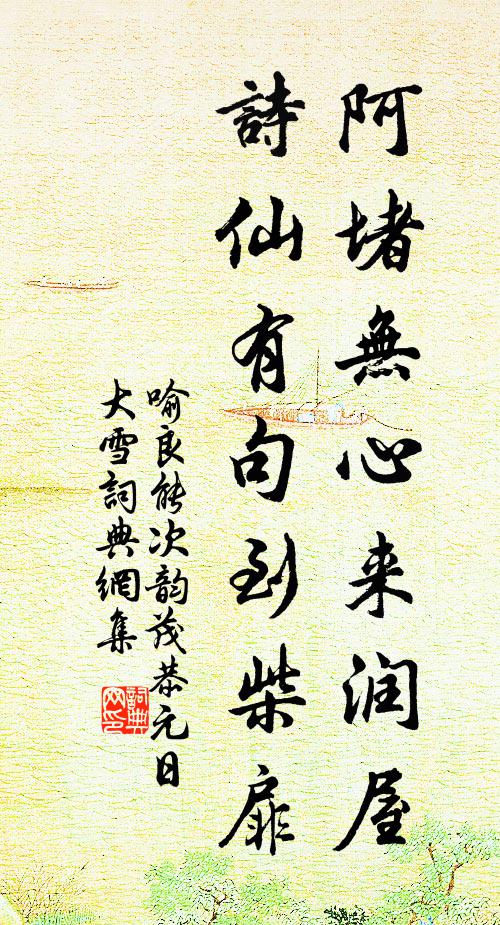 阿堵無心来润屋
詩仙有句到柴扉
喻良能次韵茂恭元日
大雪詞典網集
詞典网印